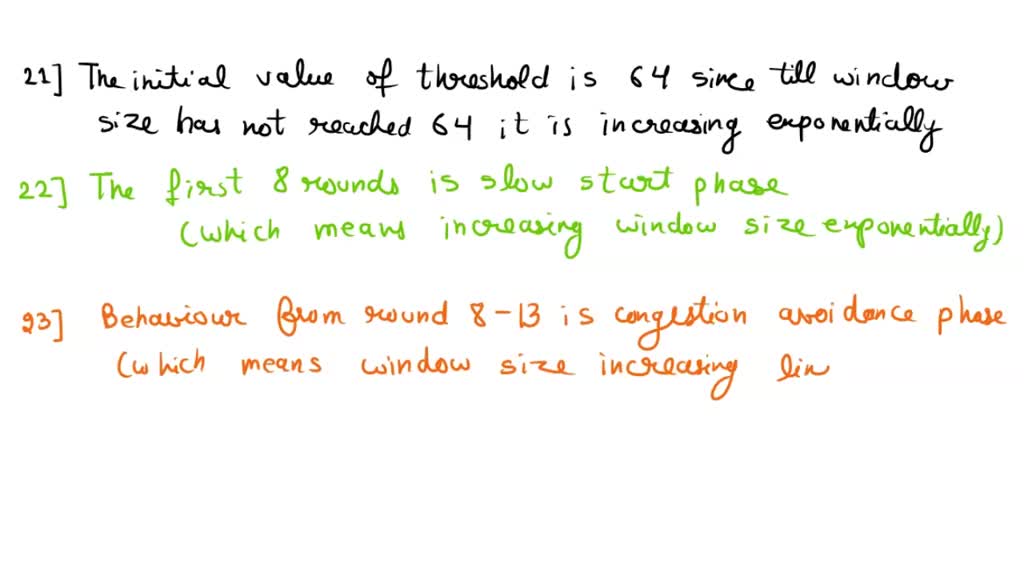 21] The initial value of threshold is 64 since till window
size has not reached 64 it is increasing exponentially
22] The first 8 rounds is slow start phase
(which means increasing window size exponentially)
23] Behaviour from round 8-13 is congestion avoidance phase
(which means window size increasing lin